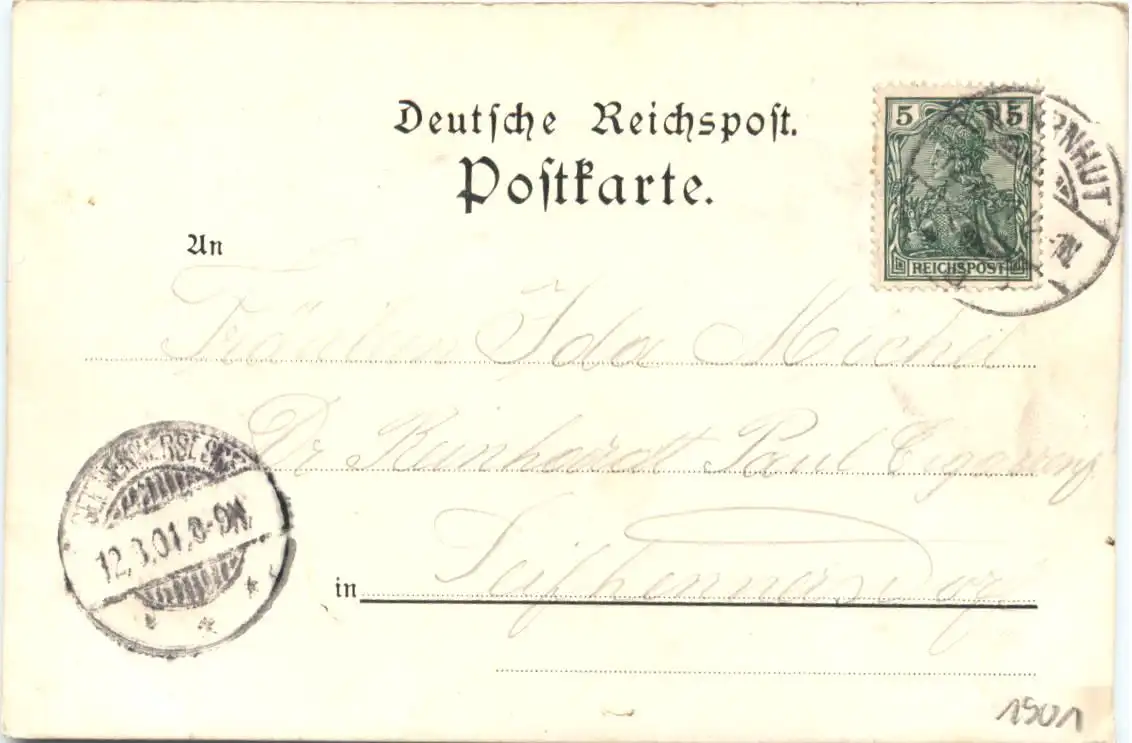 Deutsche Reichspost.
Postkarte.
5 5
REICHSPOST
RNHUT
An
Fräulein Ida Michel
Dr Reinhardt Paul
12.3.01.8-9N.
in Seifhennersdorf
1901